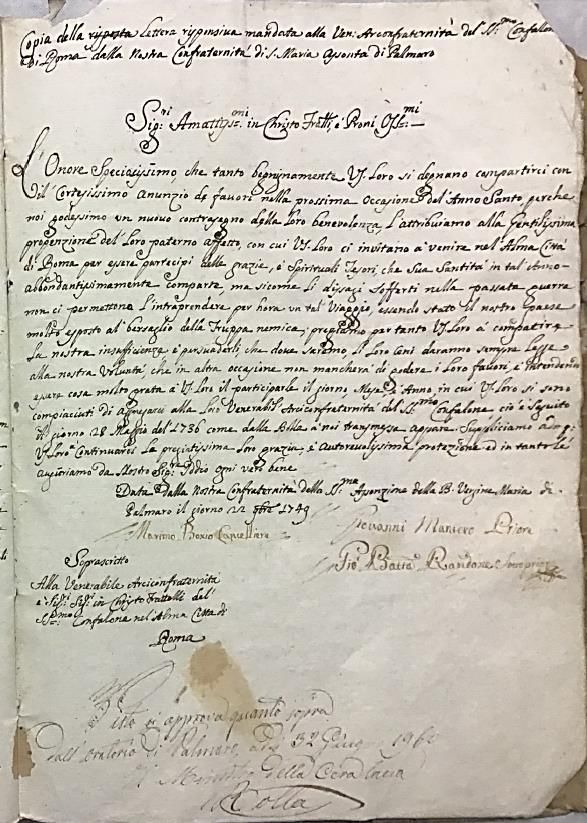 Copia della risposta Lettera risponsiva mandata alla Ven: Arconfraternità del SS:mo Confalone
di Roma dalla Nostra Confraternità di S. Maria Assonta di Palmaro
Sig:ri Amatiss:mi in Christo Fratti, e Proni Oss:mi
L'Onore Speciosissimo, che tanto begnignamente VS. Loro si degnano compartirci con
il Cortesissimo Anunzio de favori nella prossima Occasione del Anno Santo, perche
noi godessimo un nuovo contrasegno della Loro benevolenza L'attribuiamo alla Gentilissima
propenzione del Loro paterno affetto, con cui VS. Loro ci invitano à venire nel Alma Città
di Roma per essere partecipi delle grazie, e Spirituali Tesori, che Sua Santità in tal Anno
abbondantissimamente comparte, ma sicome li disaggi sofferti nella passata guerra
non ci permettono L'intraprendere per hora un tal Viaggio, essendo stato il nostro paese
molto esposto al bersaglio della Truppa nemica, preghiamo per tanto VS. Loro à compatire
La nostra insufficienza, e persuaderli, che dove saremo, li Loro Ceni daranno sempre Legge
alla nostra Voluntà, che in altra occasione non mancherà di godere i Loro favori, e intendendo
essere cosa molto grata à VS. Loro il participarle il giorno, Mese, e Anno in cui VS. Loro si sono
compiaciuti di agregarci alla Loro Venerabil Arciconfraternità del SS:mo Confalone, ciò è seguito
il giorno 28 Maggio del 1736 come dalla Bolla à noi transmessa appare. Suppliciamo
VS. Loro Continuarci La pregiatissima Loro grazia, e Autorevolissima protezione ed in tanto Le
auguriamo da Nostro Sig:re Iddio ogni vero bene
Data dalla Nostra Confraternità della SS:ma Assonzione della B. Vergine Maria di
Palmaro il giorno 22 1749
Marino Bosio Cancelliere
Giovanni Maniero Priore
Gio: Batta Randone Sotto priore
Soprascritto
Alla Venerabile Arciconfraternita
e Sig:ri Sig:ri in Christo Frattelli del
SS:mo Confalone nel Alma Citta di
Roma
Visto si approva quanto sopra
dall'oratorio di Palmaro,
Il Ministro della
Colla